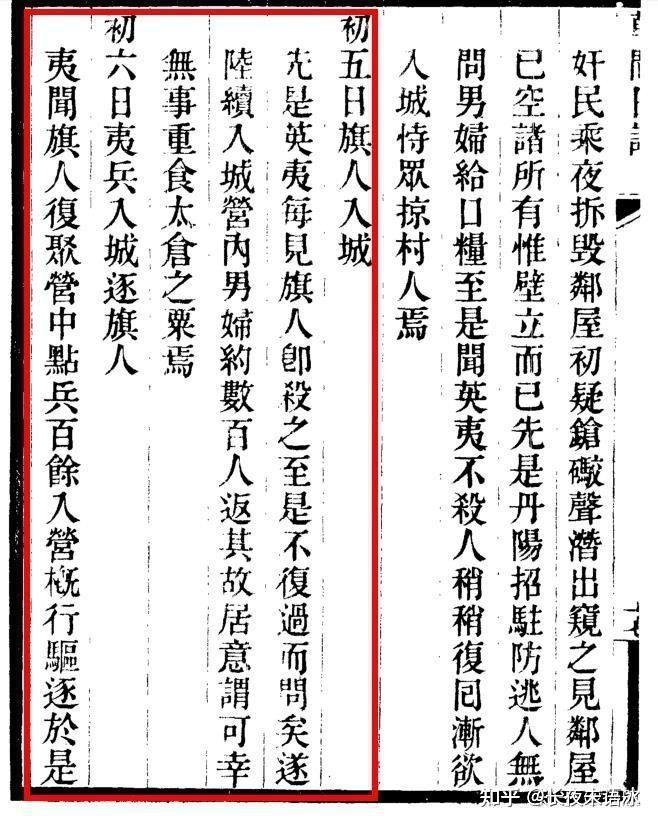 奸民乘夜拆毀鄰屋初疑鎗礮聲潛出窺之見鄰屋
已空諸所有惟壁立而已先是丹陽招駐防逃人無
問男婦給口糧至是聞英夷不殺人稍稍復囘漸欲
入城恃眾掠村人焉
初五日旗人入城
先是英夷每見旗人卽殺之至是不復過而問矣遂
陸續入城營內男婦約數百人返其故居意謂可幸
無事重食太倉之粟焉
初六日夷兵入城逐旗人
夷聞旗人復聚營中點兵百餘入營槪行驅逐於是
知乎 @长夜未语冰